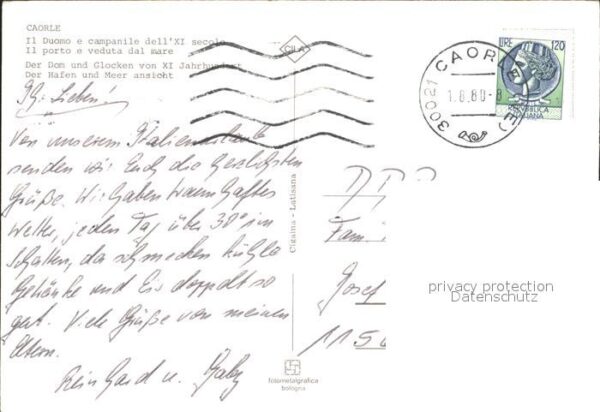 CAORLE
Il Duomo e campanile dell'XI secolo
Il porto e veduta dal mare
Der Dom und Glocken von XI Jahrhundert
Der Hafen und Meer ansicht
CILA
30021 CAORLE (VE)
1.8.80-8
LIRE 120
REPUBBLICA
ITALIANA
Ihr Lieben!
Von unserem Italienurlaub
senden wir Euch die herzlichsten
Grüße. Wir haben traumhaftes
Wetter, jeden Tag über 30° im
Schatten, da schmecken kühle
Getränke und Eis doppelt so
gut. Viele Grüße von meinen
Eltern.
Reinhard u. Gaby
Cigaina - Latisana
Fami
Josef
1150
privacy protection
Datenschutz
fotometalgrafica
bologna